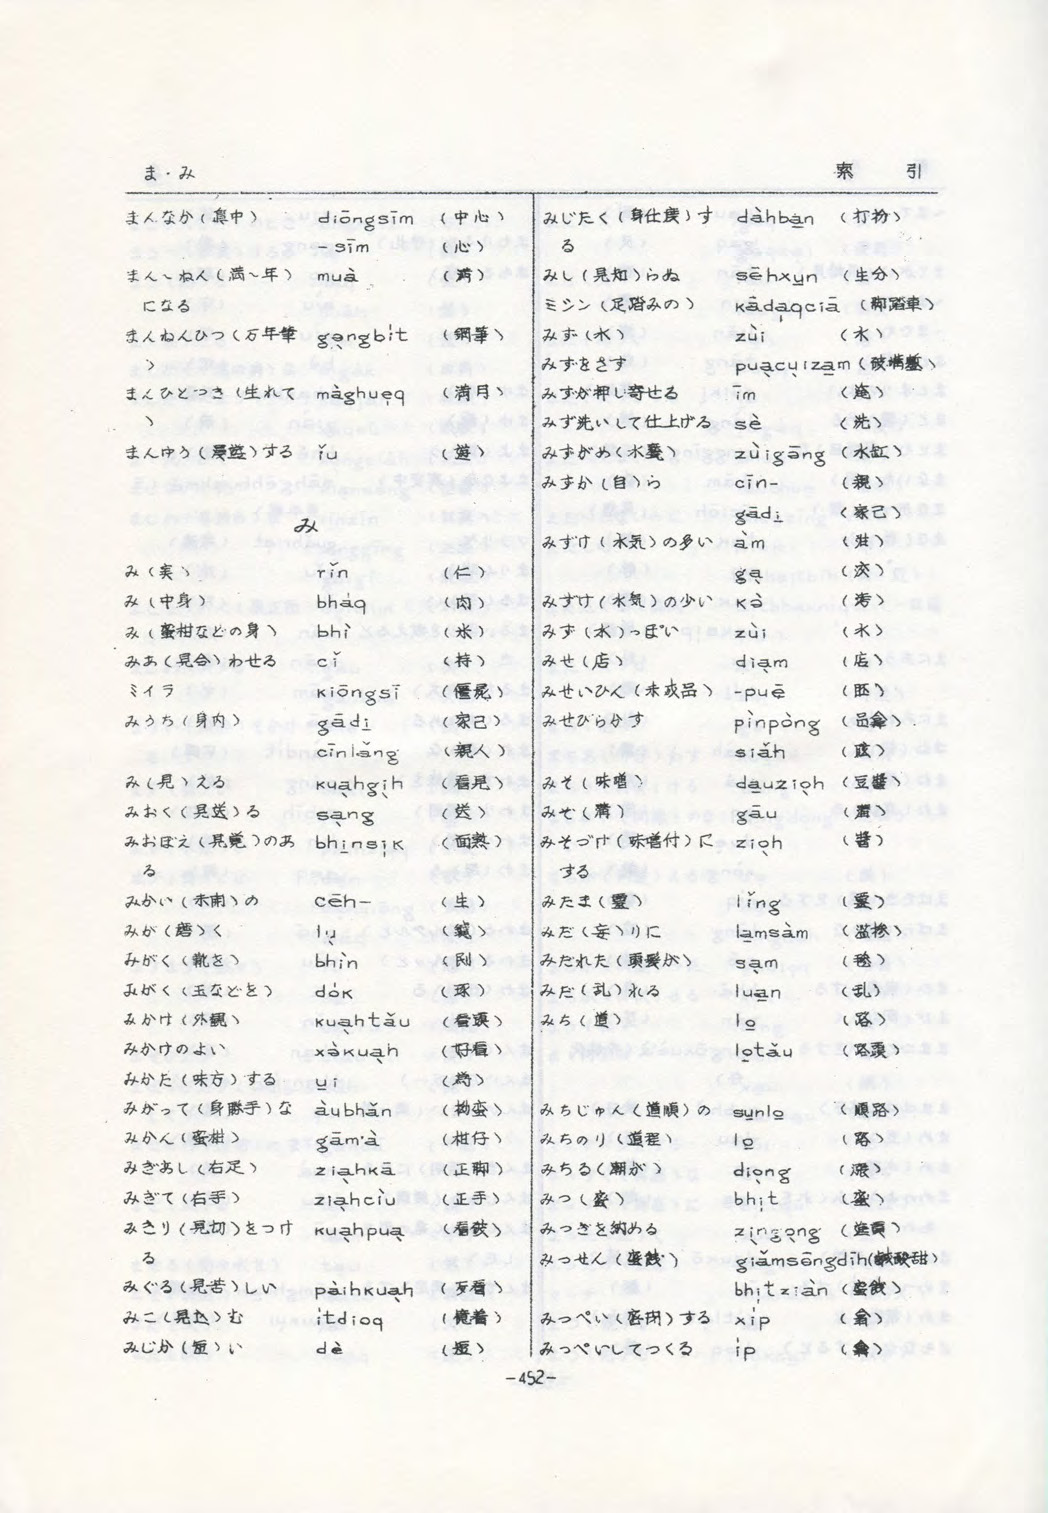 ま・み
索　引
まんなか(真中) diōngsīm (中心)
-sīm (心)
まん〜ねん(満〜年) muà (満)
になる
まんねんひつ(万年筆 gə̣ngbi̍t (鋼筆)
)
まんひとつき(生れて màghuẹq (満月)
)
まんゆう(漫遊)する ǐu (遊)
み
み(実) rǐn (仁)
み(中身) bha̍q (肉)
み(蜜柑などの身) bhì (米)
みあ(見合)わせる cǐ (持)
ミイラ kiōngsī (僵屍)
みうち(身内) gādi̱ (家己)
cīnlǎng (親人)
み(見)える kuạhgịh (看見)
みおく(見送)る sạng (送)
みおぼえ(見覚)のあ bhi̱nsi̍k (面熟)
る
みかい(未開)の cēh- (生)
みが(磨)く lụ
みがく(靴を) bhìn
みがく(玉などを) dok (琢)
みかけ(外観) kuạhtǎu (看頭)
みかけのよい xòkuạh (好看)
みかた(味方)する u̱i (為)
みがって(身勝手)な àubhǎn (拗蛮)
みかん(蜜柑) gām·à (柑仔)
みぎあし(右足) ziạhkā (正脚)
みぎて(右手) ziạhcìu (正手)
みきり(見切)をつけ kuạhpuạ (看破)
る
みぐる(見苦)しい pàihkuạh (歹看)
みこ(見込)む itdioq
みじか(短)い dè (短)
みじたく(身仕度)す dàhba̱n (打扮)
る
みし(見知)らぬ sēhxu̱n (生分)
ミシン(足踏みの) kāda̍qciā (脚踏車)
みず(水) zùi (水)
みずをさす puạcụiza̱m
みずが押し寄せる īm (淹)
みず洗いして仕上げる sè (洗)
みずがめ(水甕) zùigāng (水缸)
みずか(自)ら cīn- (親)
gādi̱ (家己)
みずけ(水気)の多い àm
gạ
みずけ(水気)の少い kò
みず(水)っぽい zùi (水)
みせ(店) diạm (店)
みせいひん(未成品) -puē (胚)
みせびらかす pìnpòng
siǎh
みそ(味噌) da̱uziọh (豆醬)
みぞ(溝) gāu (溝)
みそづけ(味噌付)に ziọh (醬)
する
みたま(霊) lǐng (霊)
みだ(妄)りに la̱msàm (滥摻)
みだれた(頭髪が) sạm
みだ(乱)れる lua̱n (乱)
みち(道) lo̱ (路)
lo̱tǎu (路頭)
みちじゅん(道順)の su̱nlo̱ (順路)
みちのり(道程) lo̱ (路)
みちる(潮が) diọng (漲)
みつ(蜜) bhi̍t (蜜)
みつぎを納める zịngọng (進貢)
みっせん(蜜餞) giǎmsēngdīh(鹹酸甜)
bhi̍tziàn (蜜餞)
みっぺい(密閉)する xip
みっぺいしてつくる ip
-452-